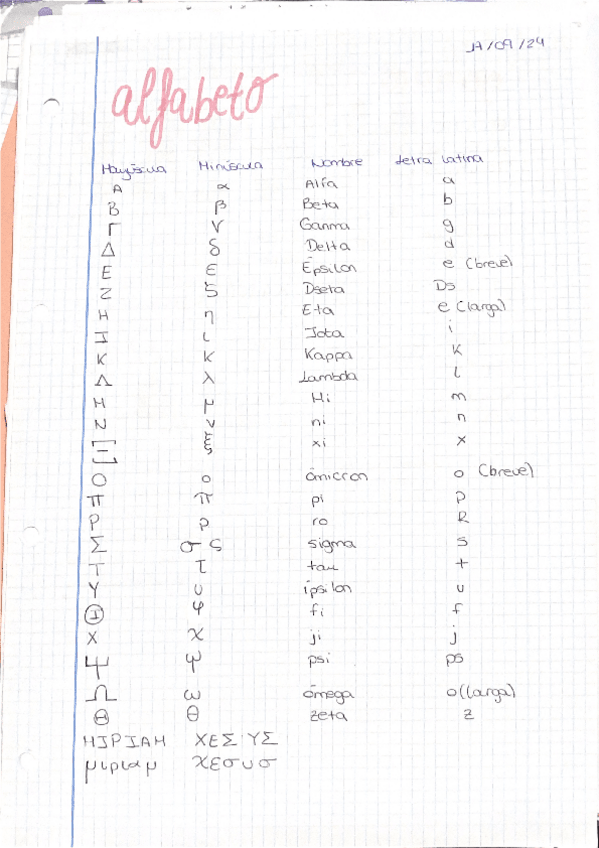 17/09/24
alfabeto
Mayúscula Minúscula Nombre Letra latina
Α α Alfa a
Β β Beta b
Γ γ Ganma g
Δ δ Delta d
Ε ε Épsilon e (breve)
Ζ ξ Dseta Ds
Η η Eta e (larga)
Ι ι Iota i
Κ κ Kappa K
Λ λ Lambda l
Μ μ Mi m
Ν ν ni n
Ξ ξ xi x
Ο ο ómicron o (breve)
Π π pi p
Ρ ρ ro R
Σ σ ς sigma s
Τ τ tau t
Υ υ ípsilon u
Φ φ fi f
Χ χ ji j
Ψ ψ psi ps
Ω ω ómega o (larga)
Θ θ zeta z
ΜΙΡΙΑΜ ΧΕΣΥΣ
μιριαμ χεσυσ